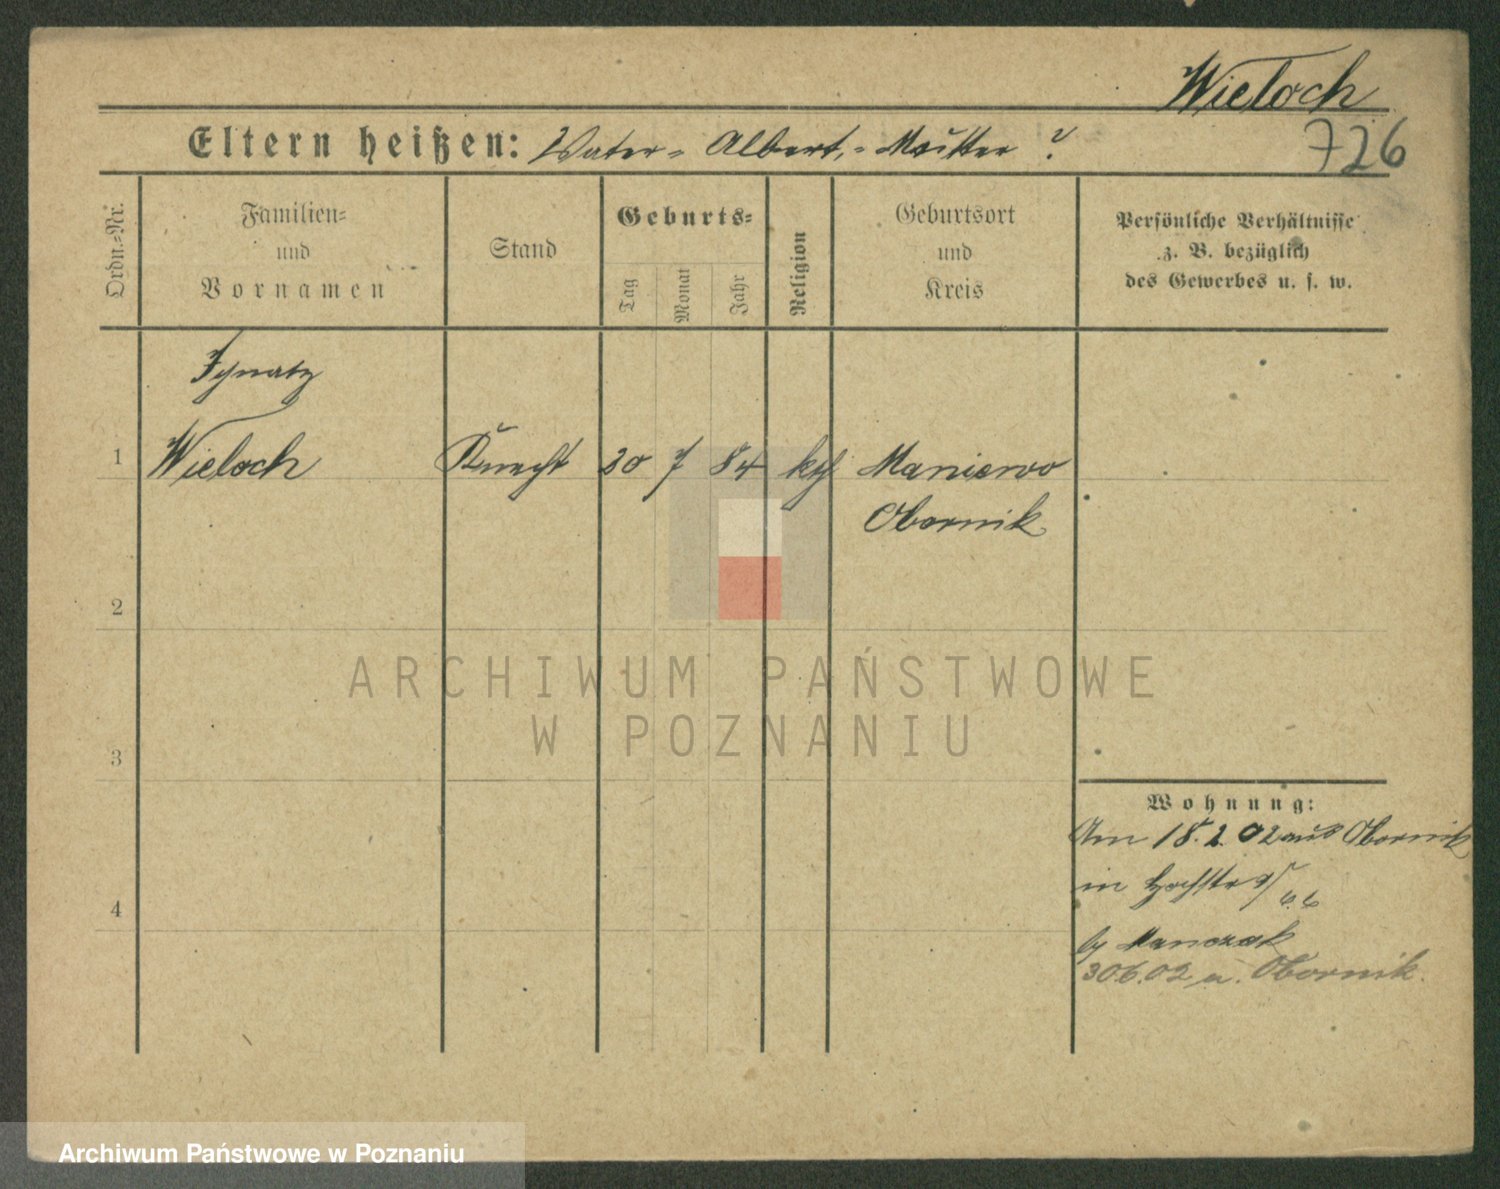 Wieloch
726
Eltern heißen: Vater - Albert, - Mutter ?
Ordn.-Nr.
Familien-
und
Vornamen
Stand
Geburts-
Tag
Monat
Jahr
Religion
Geburtsort
und
Kreis
Persönliche Verhältnisse
z. B. bezüglich
des Gewerbes u. s. w.
Ignatz
1 Wieloch Knecht 30 7 84 kth Maniewo
Obornik
2
3
4
Wohnung:
Am 18.2.02 aus Obornik
in Hochstr
by Manczak
30.6.02 n. Obornik
ARCHIWUM PAŃSTWOWE
W POZNANIU
Archiwum Państwowe w Poznaniu